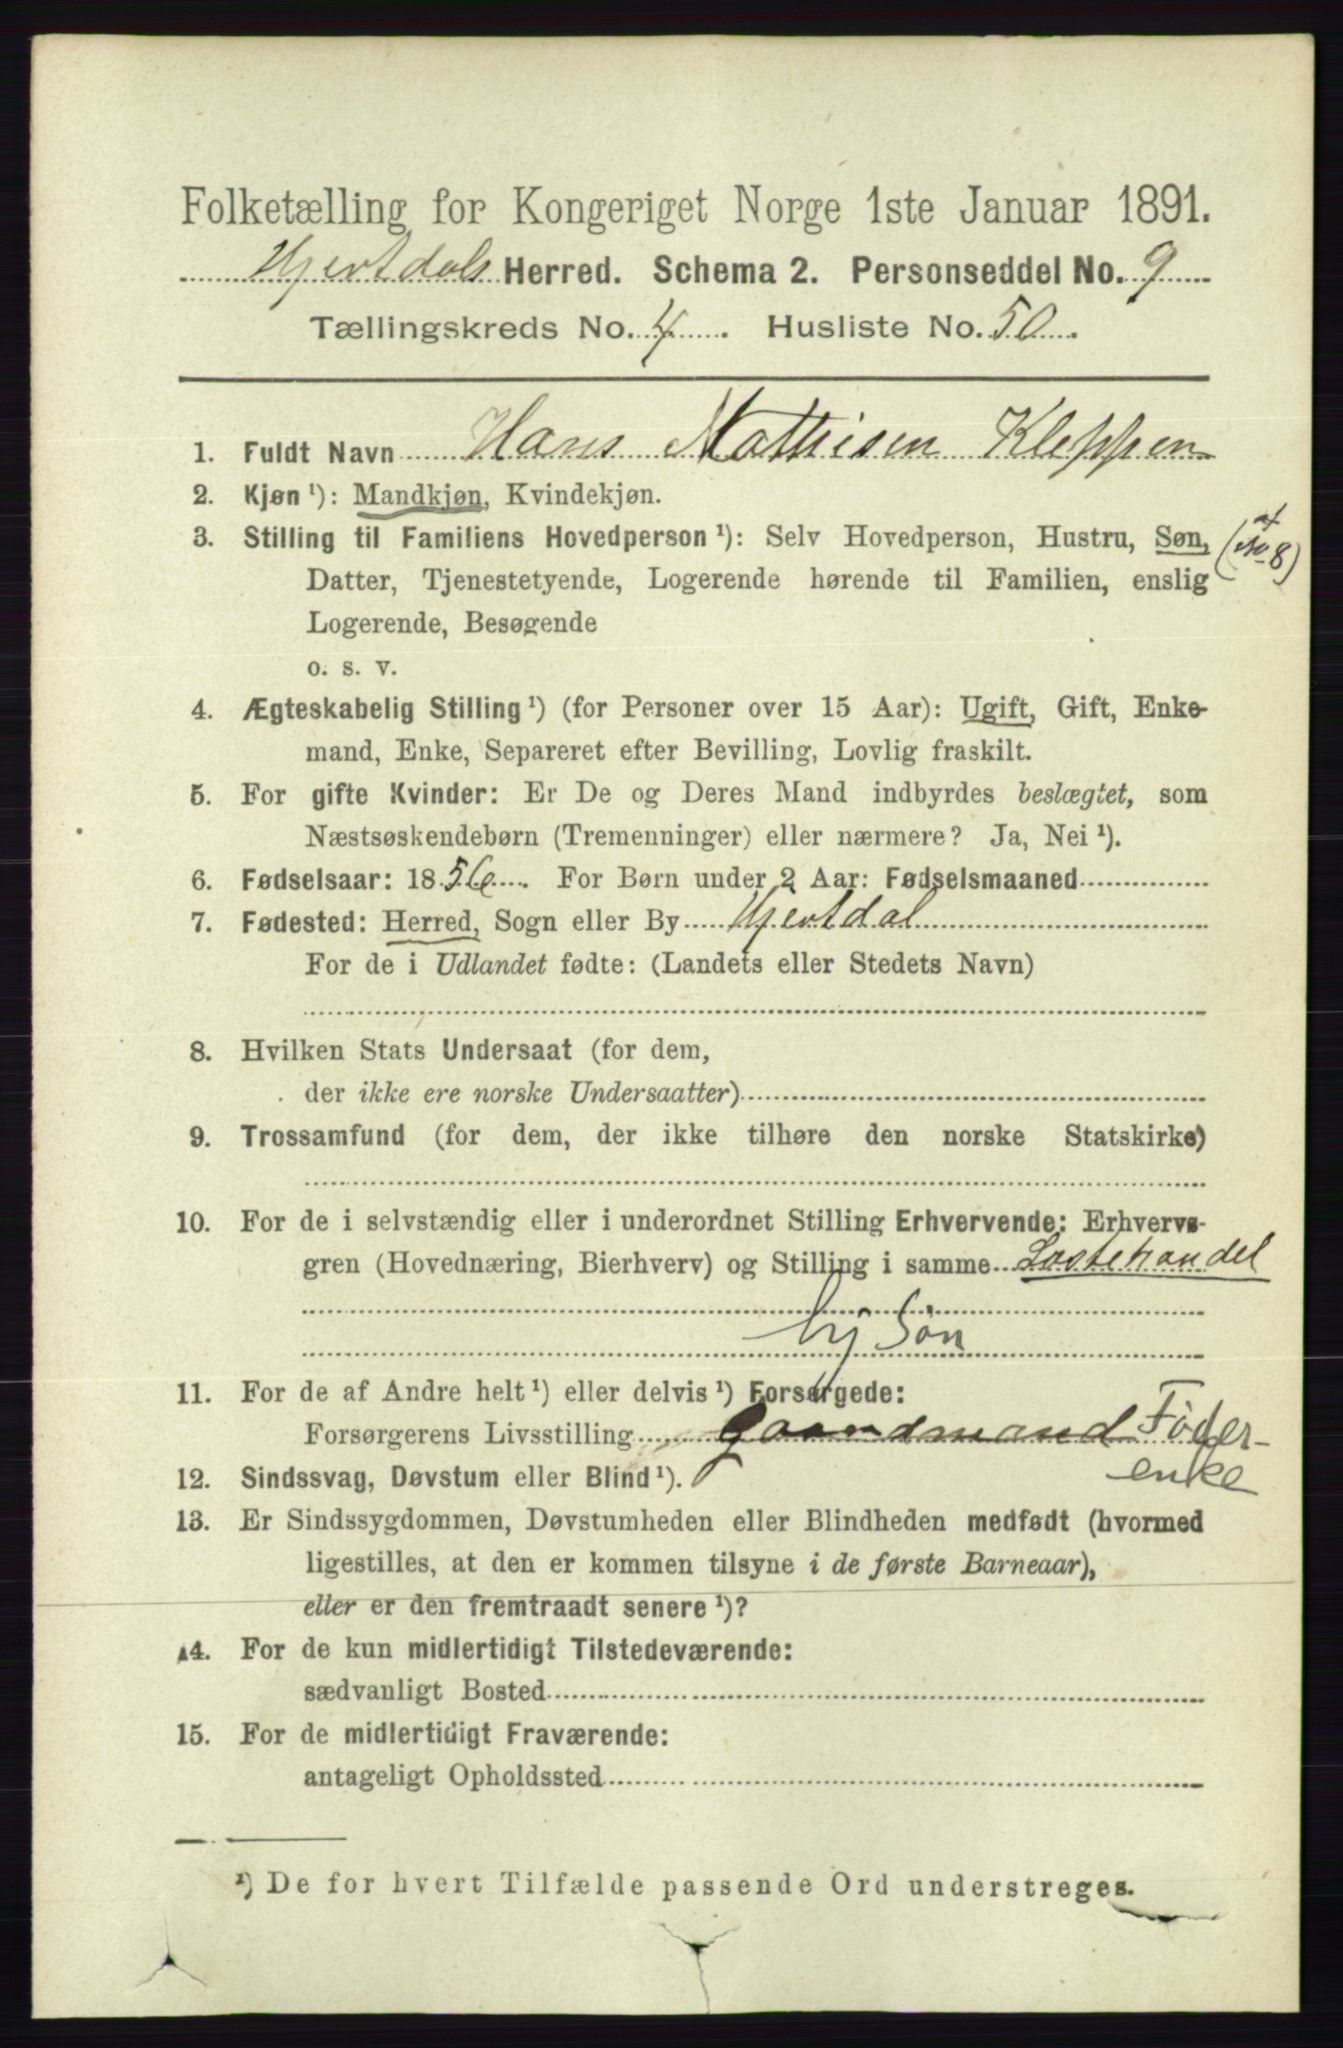 Folketælling for Kongeriget Norge 1ste Januar 1891.
Hjertdals Herred. Schema 2. Personseddel No. 9
Tællingskreds No. 4. Husliste No. 50.
1. Fuldt Navn Hans Mathisen Kleppen
2. Kjøn ¹): Mandkjøn, Kvindekjøn.
3. Stilling til Familiens Hovedperson ¹): Selv Hovedperson, Hustru, Søn, (af No 8)
Datter, Tjenestetyende, Logerende hørende til Familien, enslig
Logerende, Besøgende
o. s. v.
4. Ægteskabelig Stilling ¹) (for Personer over 15 Aar): Ugift, Gift, Enke-
mand, Enke, Separeret efter Bevilling, Lovlig fraskilt.
5. For gifte Kvinder: Er De og Deres Mand indbyrdes beslægtet, som
Næstsøskendebørn (Tremenninger) eller nærmere? Ja, Nei ¹).
6. Fødselsaar: 1856. For Børn under 2 Aar: Fødselsmaaned
7. Fødested: Herred, Sogn eller By Hjertdal
For de i Udlandet fødte: (Landets eller Stedets Navn)
8. Hvilken Stats Undersaat (for dem,
der ikke ere norske Undersaatter)
9. Trossamfund (for dem, der ikke tilhøre den norske Statskirke)
10. For de i selvstændig eller i underordnet Stilling Erhvervende: Erhvervs-
gren (Hovednæring, Bierhverv) og Stilling i samme Lastehandel
Søn
11. For de af Andre helt ¹) eller delvis ¹) Forsørgede:
Forsørgerens Livsstilling Gaardmand Føder-
enke
12. Sindssvag, Døvstum eller Blind ¹).
13. Er Sindssygdommen, Døvstumheden eller Blindheden medfødt (hvormed
ligestilles, at den er kommen tilsyne i de første Barneaar),
eller er den fremtraadt senere ¹)?
14. For de kun midlertidigt Tilstedeværende:
sædvanligt Bosted
15. For de midlertidigt Fraværende:
antageligt Opholdssted
¹) De for hvert Tilfælde passende Ord understreges.